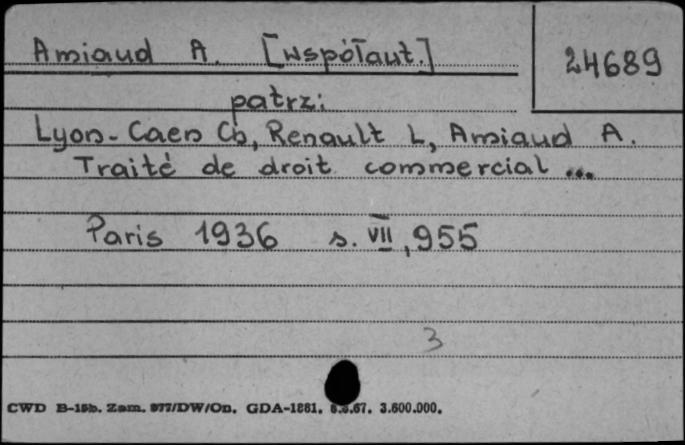 Amiaud A. [współaut.]
24689
patrz:
Lyon-Caen Ch, Renault L, Amiaud A.
Traité de droit commercial ...
Paris 1936 s. VII, 955
3
CWD B-15b. Zam. 977/DW/On. GDA-1881. 8.3.67. 3.600.000.